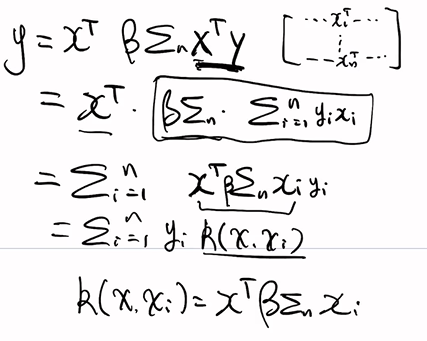 y = xᵀ βΣₙ Xᵀy [ ⋯ xᵢᵀ ⋯ ⋮ ⋯ xₙᵀ ⋯ ]
= xᵀ · βΣₙ · Σᵢ₌₁ⁿ yᵢxᵢ
= Σᵢ₌₁ⁿ xᵀβΣₙxᵢyᵢ
= Σᵢ₌₁ⁿ yᵢ k(x, xᵢ)
k(x, xᵢ) = xᵀβΣₙxᵢ